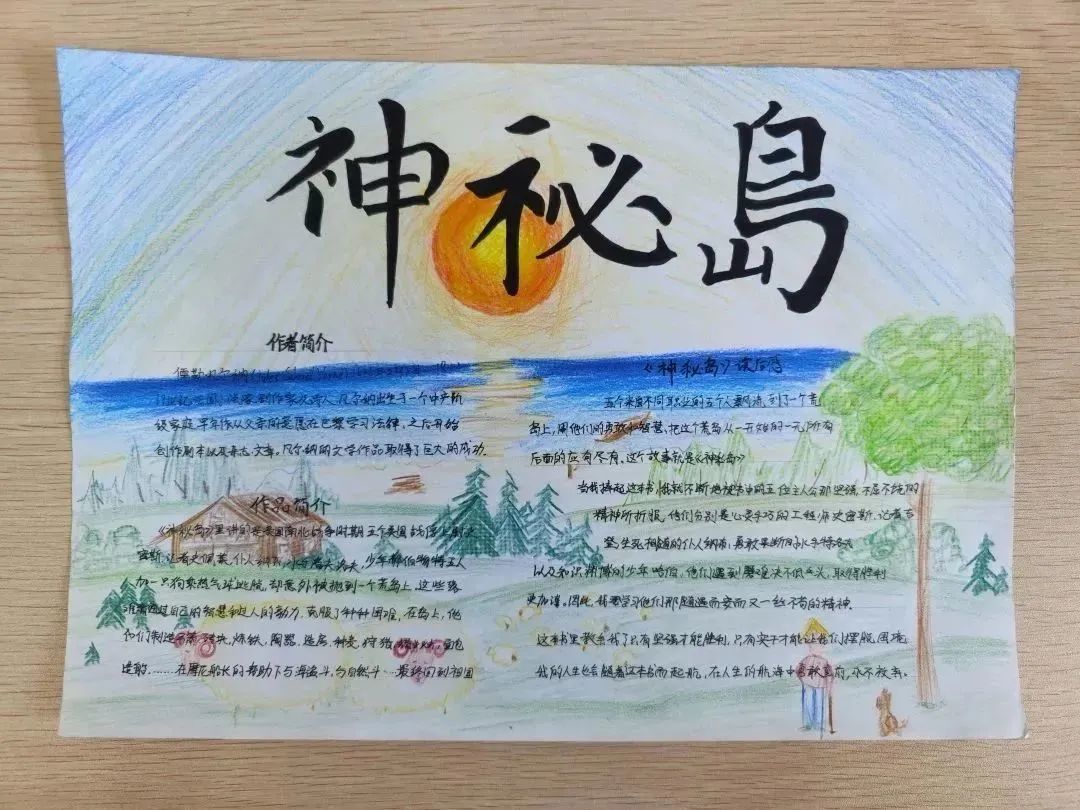 神秘岛
作者简介
儒勒
19世纪法国，法国剧作家及诗人，凡尔纳出生于一个中产阶
级家庭，早年依从父亲的意愿在巴黎学习法律，之后开始
创作剧本以及杂志文章。凡尔纳的文学作品取得了巨大的成功.
作品简介
《神秘岛》里讲的是美国南北战争时期五个美国
密斯.记者史佩莱、仆人 水手 少年赫伯特 工人
加一只狗乘热气球逃脱，却意外被抛到一个荒岛上，这些落
难者通过自己的智慧和过人的努力，克服了种种困难，在岛上，他
们制造 砖块，炼铁，陶器，造房，种麦，狩猎
造船……在尼莫船长的帮助下与海盗斗，与自然斗…最终回到祖国
《神秘岛》读后感
五个来自不同职业的五个人漂流到了一个荒
岛上，用他们的勇敢和智慧，把这个荒岛从一开始的一无所有
后面的应有尽有，这个故事就是《神秘岛》
当我捧起这本书，我就不断地被书中间五位主人公那坚强、不屈不饶的
精神所折服，他们分别是心灵手巧的工程师史密斯、记者
坚、生死相随的仆人纳布，勇敢果断的水手
以及知识渊博的少年哈伯，他们遇到磨难决不低头，取得胜利
更加谦。因此，我要学习他们那随遇而安而又一丝不苟的精神.
这本书里教会我了只有坚强才能胜利，只有实干才能让我们摆脱困境，
我的人生也会随着这本书而起航，在人生的航海中勇敢直前，永不放弃.